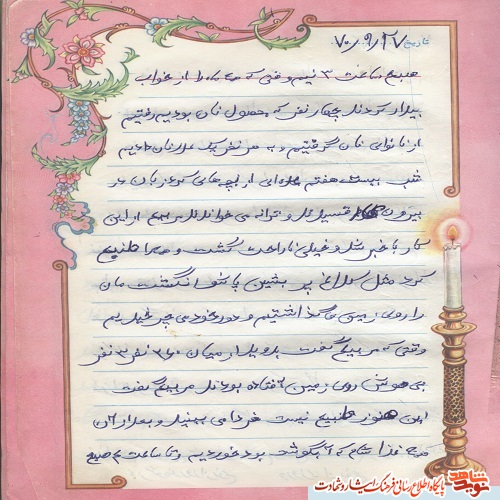 تاریخ ۷۰/۹/۲۷
صبح ساعت ۳ نیم وقتی که همه ما را از خواب
بیدار کردند چهار نفر که مسئول نان بودیم رفتیم
از نانوایی نان گرفتیم و به هر نفر یک عدد نان دادیم
شب بیست هفتم از بچه‌های کردزبان در
بیرون و ترانه می‌خواندند مربی از این
کار باخبر شد و خیلی ناراحت گشت و همه را
کرد مثل کلاغ پر بشین پاشو انگشت مان
را روی زمین می‌گذاشتیم و دور خود می‌چرخیدیم
وقتی که مربی گفت بدوید از میان ۳۶۰ نفر ۳ نفر
بی هوش روی زمین افتاده بودند مربی گفت
این هنوز تنبیه نیست فردا می بینید و بعد از آن
غذا شام که آبگوشت بود خوردیم و تا ساعت ۴ صبح
نوید شاهد
پایگاه اطلاع رسانی فرهنگ ایثار و شهادت